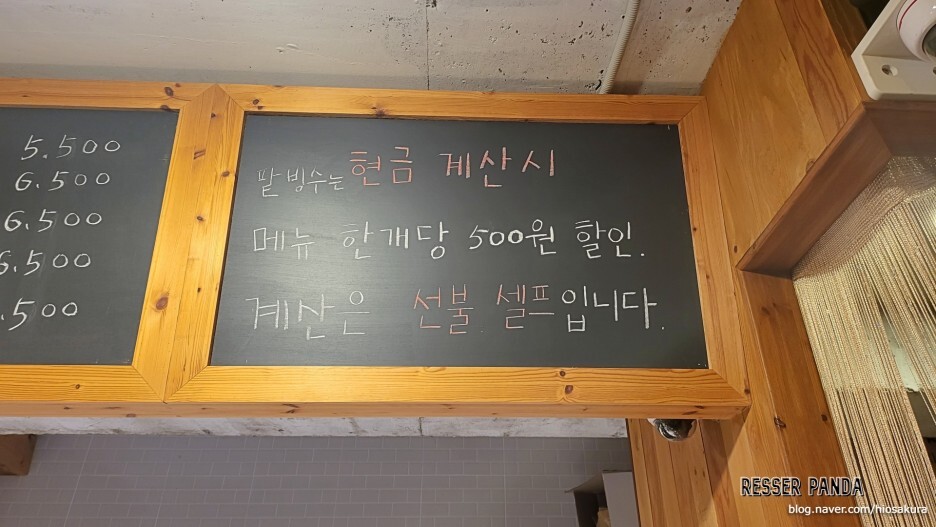 5.500
6.500
6.500
6.500
.500
팥빙수는 현금 계산시
메뉴 한개당 500원 할인.
계산은 선불 셀프입니다.
RESSER PANDA
blog.naver.com/hiosakura